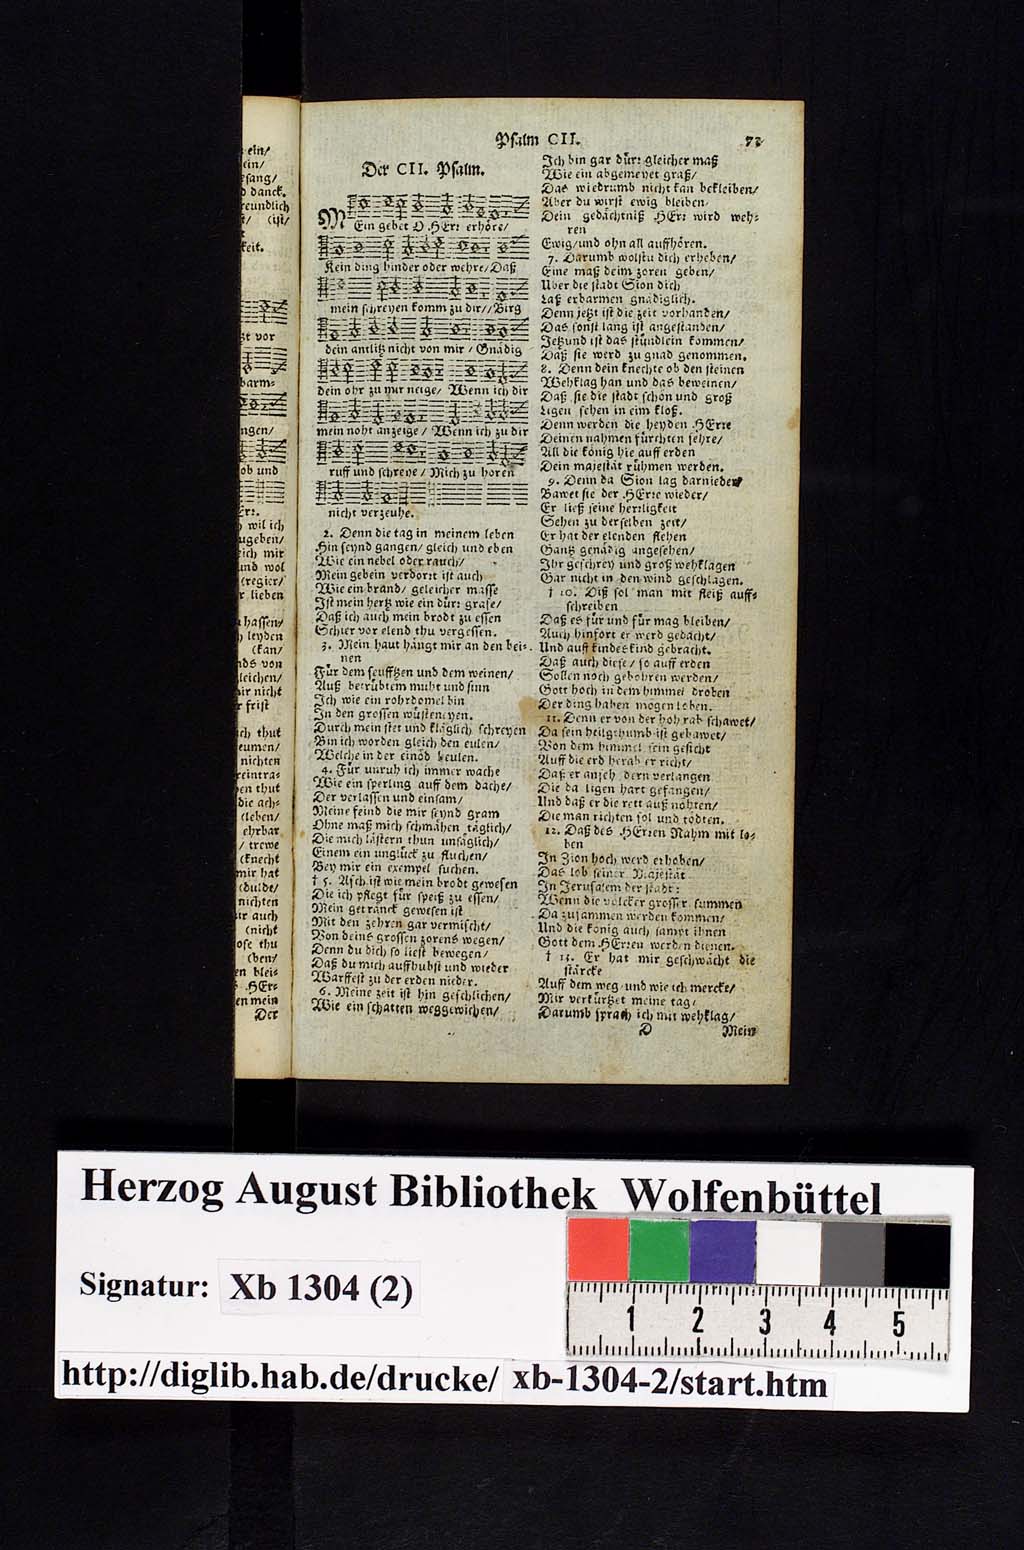 Psalm CII. 73
Der CII. Psalm.
MEin gebet O HErr erhöre/
Kein ding hinder oder wehre/Daß
mein schreyen komm zu dir// Birg
dein antlitz nicht von mir / Gnädig
dein ohr zu mir neige/ Wenn ich dir
mein noht anzeige / Wenn ich zu dir
ruff und schreye/ Mich zu hören
nicht verzeuhe.
2. Denn die tag in meinem leben
Hin seynd gangen/ gleich und eben
Wie ein nebel oder rauch/
Mein gebein verdorrt ist auch
Wie ein brand/ geleicher masse
Ist mein hertz wie ein dürr grase/
Daß ich auch mein brodt zu essen
Schier vor elend thu vergessen.
3. Mein haut hängt mir an den bei-
nen
Für dem seufftzen und dem weinen/
Auß betrübtem muht und sinn
Ich wie ein rohrdomel bin
In den grossen wüsteneyen.
Durch mein stet und kläglich schreyen
Bin ich worden gleich den eulen/
Welche in der einöd heulen.
4. Für unruh ich immer wache
Wie ein sperling auff dem dache/
Der verlassen und einsam/
Meine feind die mir seynd gram
Ohne maß mich schmähen täglich/
Die mich lästern thun unsäglich/
Einem ein unglück zu fluchen/
Bey mir ein exempel suchen.
† 5. Asch ist wie mein brodt gewesen
Die ich pflegt für speiß zu essen/
Mein getränck gewesen ist
Mit den zehren gar vermischt/
Von deins grossen zorens wegen/
Denn du dich so liest bewegen/
Daß du mich auffhubst und wieder
Warffest zu der erden nieder.
6. Meine zeit ist hin geschlichen/
Wie ein schatten weggewichen/
Ich bin gar dürr gleicher maß
Wie ein abgemeyet graß/
Das wiedrumb nicht kan bekleiben/
Aber du wirst ewig bleiben/
Dein gedächtniß HErr wird weh-
ren
Ewig/und ohn all auffhören.
7. Darumb wolstu dich erheben/
Eine maß deim zoren geben/
Uber die stadt Sion dich
Laß erbarmen gnädiglich.
Denn jetzt ist die zeit vorhanden/
Das sonst lang ist angestanden/
Jetzund ist das stündlein kommen/
Daß sie werd zu gnad genommen.
8. Denn dein knechte ob den steinen
Wehklag han und das beweinen/
Daß sie die stadt schön und groß
Ligen sehen in eim kloß.
Denn werden die heyden HErre
Deinen nahmen fürchten sehre/
All die könig hie auff erden
Dein majestät rühmen werden.
9. Denn da Sion lag darnieder
Bawet sie der HErre wieder/
Er ließ seine herrligkeit
Sehen zu derselben zeit/
Er hat der elenden flehen
Gantz genädig angesehen/
Ihr geschrey und groß wehklagen
Gar nicht in den wind geschlagen.
† 10. Diß sol man mit fleiß auff-
schreiben
Daß es für und für mag bleiben/
Auch hinfort er werd gedacht/
Und auff kindes kind gebracht.
Daß auch diese/ so auff erden
Sollen noch gebohren werden/
Gott hoch in dem himmel droben
Der ding haben mögen loben.
11. Denn er von der höh rab schawet/
Da sein heilgthumb ist gebawet/
Von dem himmel sein gesicht
Auff die erd herab er richt/
Daß er anseh dern verlangen
Die da ligen hart gefangen/
Und daß er die rett auß nöhten/
Die man richten sol und tödten.
12. Daß des HErren Nahm mit lo-
ben
In Zion hoch werd erhoben/
Das lob seiner Majestät
In Jerusalem der stadt:
Wenn die völcker grosser summen
Da zusammen werden kommen/
Und die könig auch sampt ihnen
Gott dem HErren werden dienen.
† 13. Er hat mir geschwächt die
stärcke
Auff dem weg/ und wie ich mercke/
Mir verkürtzet meine tag/
Darumb sprach ich mit wehklag/
D Mein
Herzog August Bibliothek Wolfenbüttel
Signatur: Xb 1304 (2)
1 2 3 4 5
http://diglib.hab.de/drucke/ xb-1304-2/start.htm